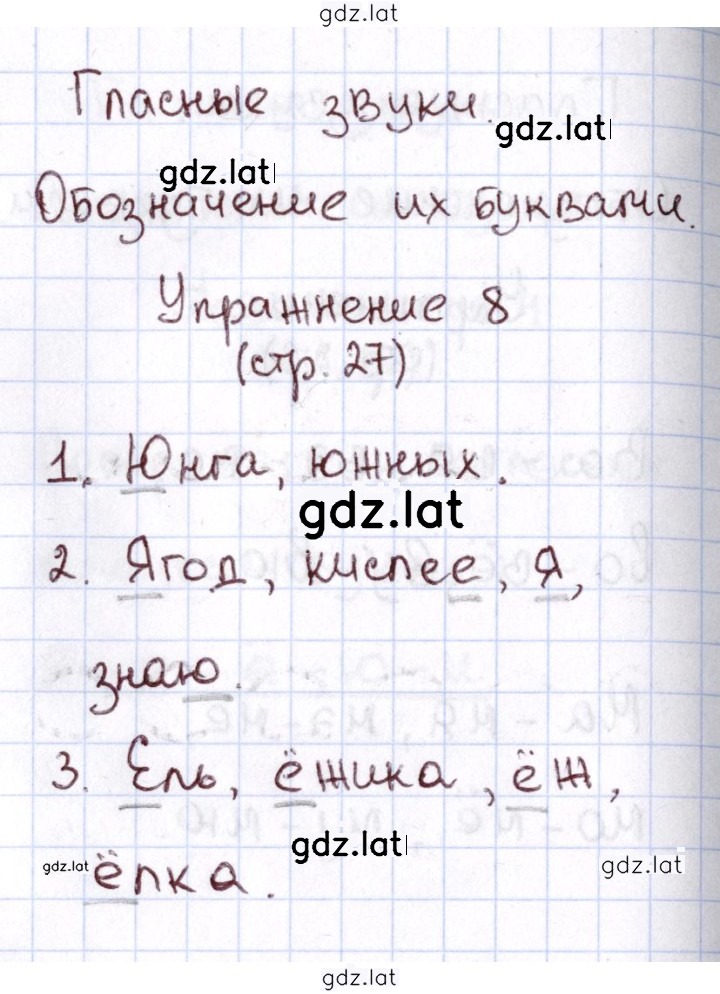 gdz.lat
Гласные звуки.
gdz.lat
gdz.lat
Обозначение их буквами.
Упражнение 8
(стр. 27)
1. Юнга, южных.
gdz.lat
2. Ягод, кислее, Я,
знаю.
3. Ель, ёжика, ёж,
gdz.lat
gdz.lat
gdz.lat
ёлка.
gdz.lat